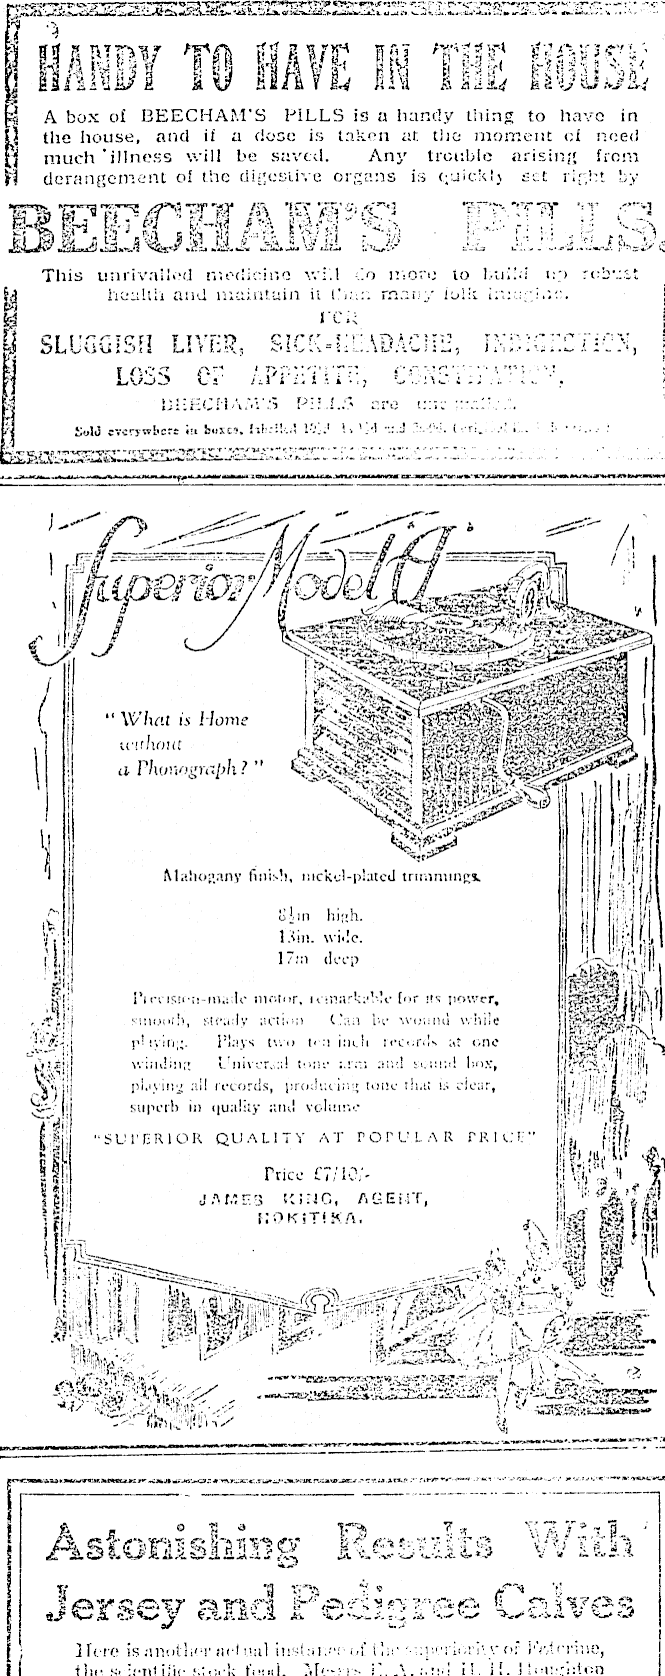 HANDY TO HAVE IN THE HOUSE
A box of BEECHAM'S PILLS is a handy thing to have in
the house, and if a dose is taken at the moment of need
much illness will be saved. Any trouble arising from
derangement of the digestive organs is quickly set right by
BEECHAM'S PILLS.
This unrivalled medicine will do more to build up robust
health and maintain it than many folk imagine.
FOR
SLUGGISH LIVER, SICK-HEADACHE, INDIGESTION,
LOSS OF APPETITE, CONSTIPATION,
BEECHAM'S PILLS are unequalled.
Sold everywhere in boxes, labelled
Superior Model "A"
"What is Home
without
a Phonograph?"
Mahogany finish, nickel-plated trimmings.
8½in high.
13in. wide.
17in deep
Precision-made motor, remarkable for its power,
smooth, steady action Can be wound while
playing. Plays two ten inch records at one
winding Universal tone arm and sound box,
playing all records, producing tone that is clear,
superb in quality and volume
"SUPERIOR QUALITY AT POPULAR PRICE"
Price £7/10/-
JAMES KING, AGENT,
HOKITIKA.
Astonishing Results With
Jersey and Pedigree Calves
Here is another actual instance of the superiority of Feterine,
the scientific stock food. Messrs E. A. and H. H. Houghton